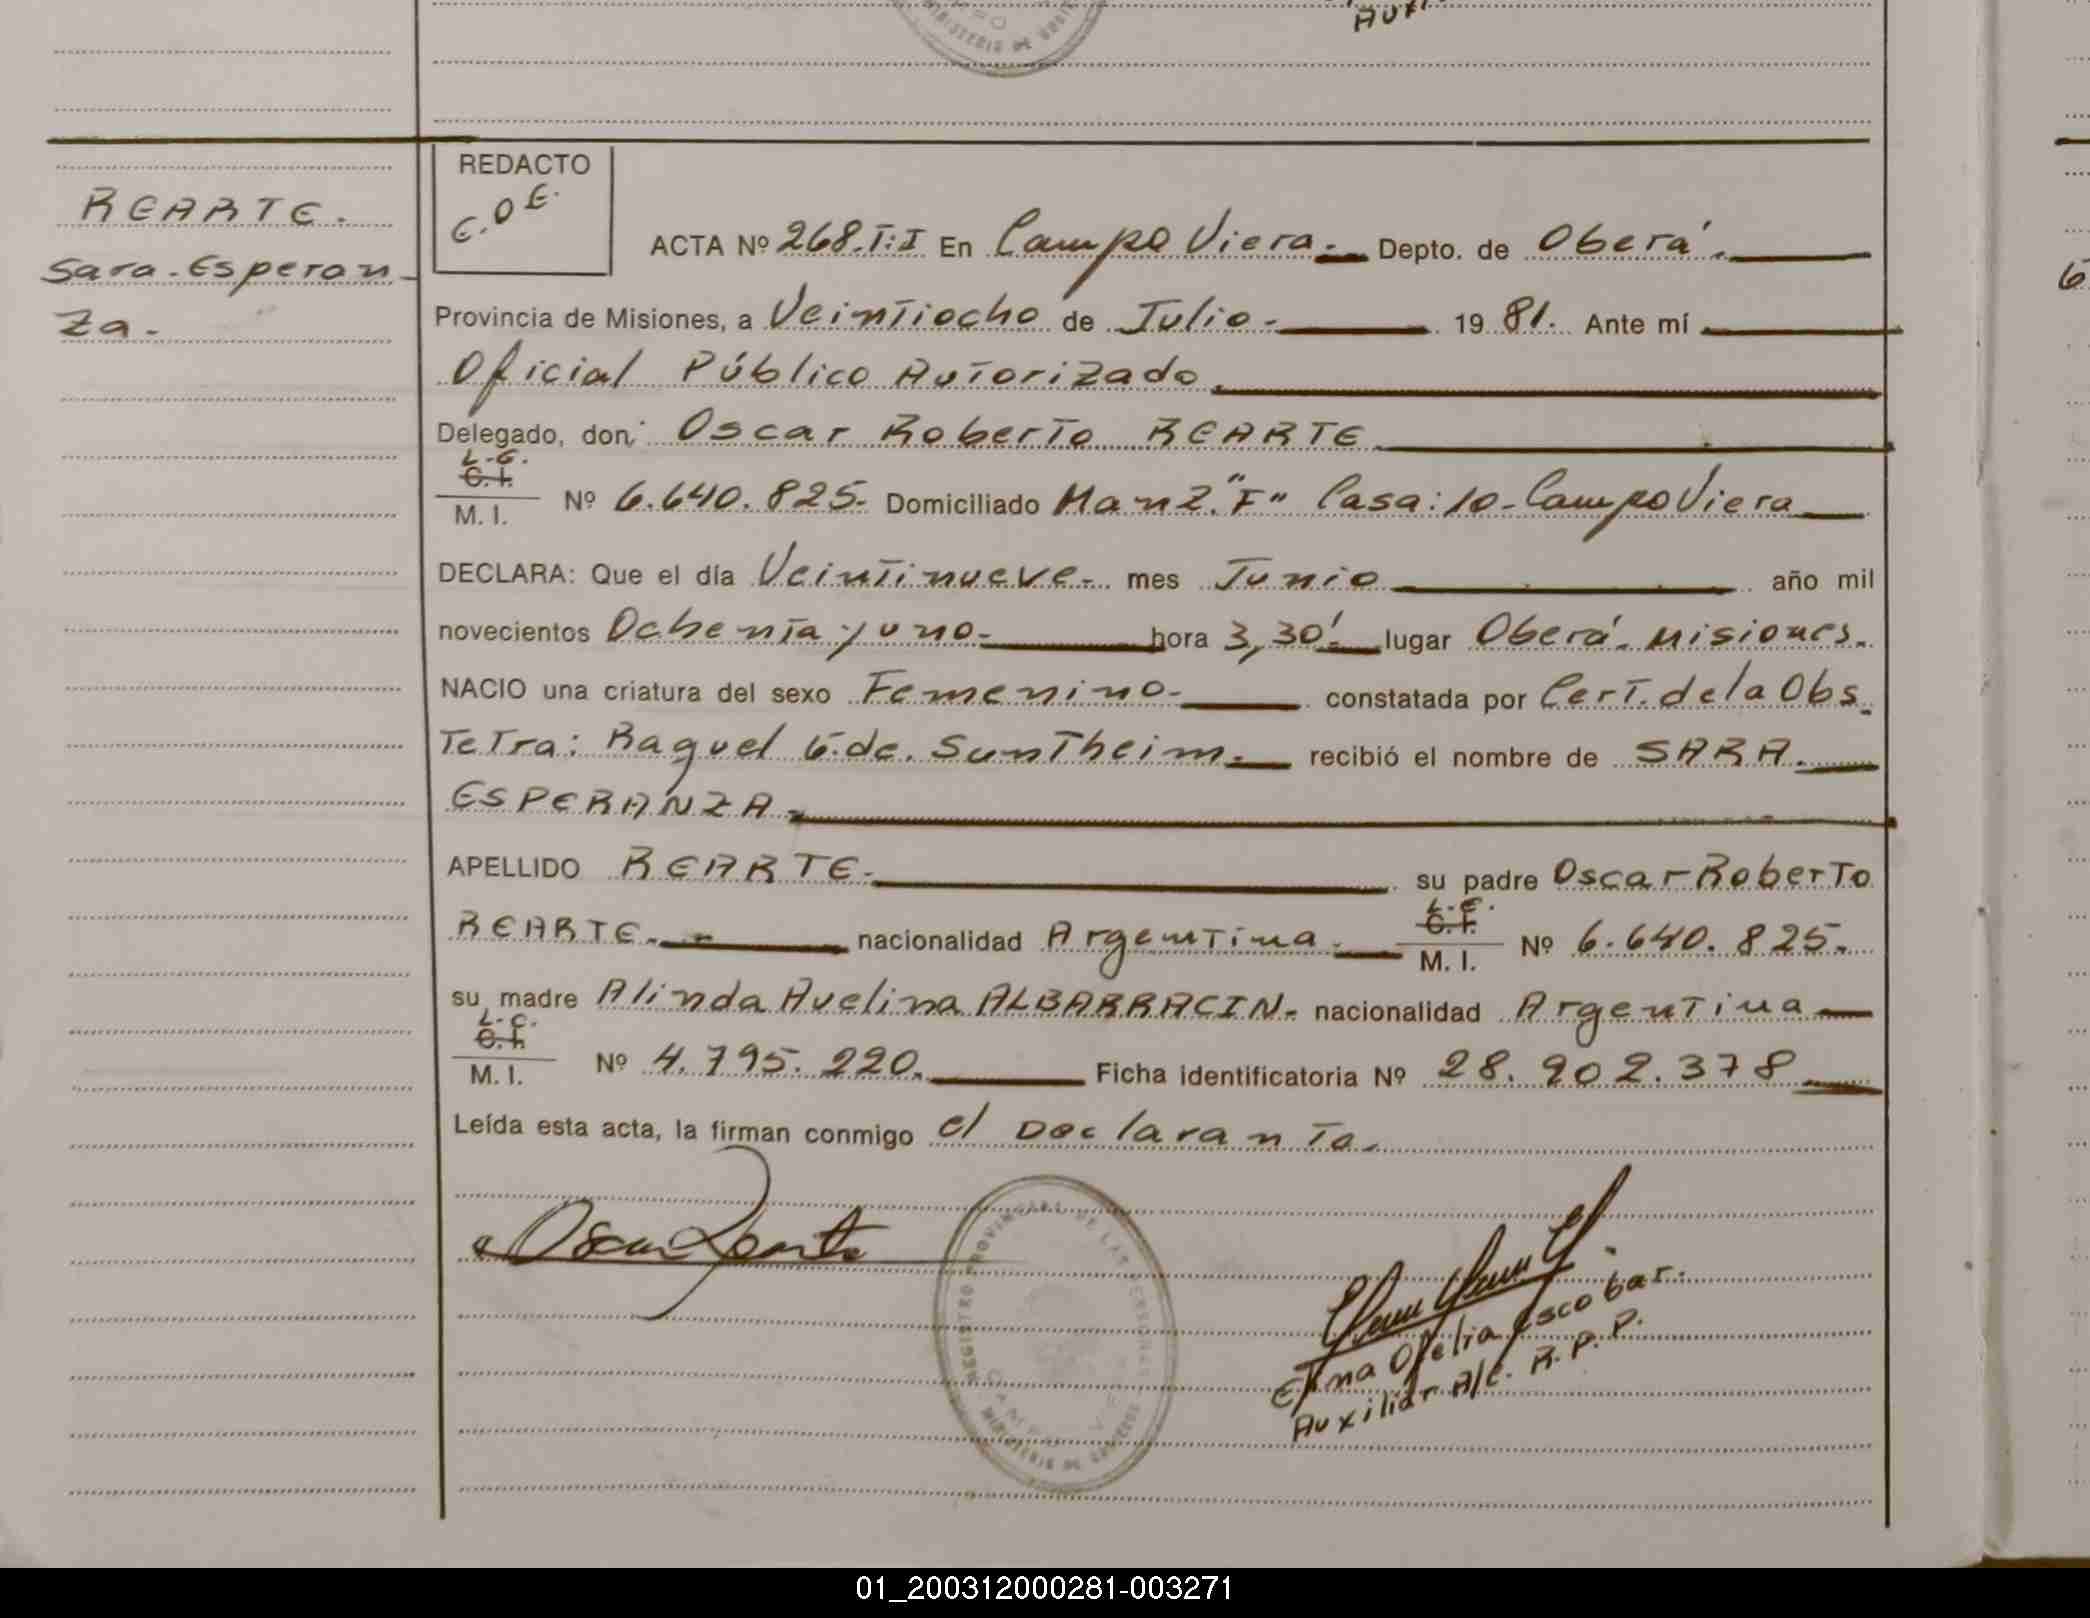 REARTE.
Sara-Esperan-
za.
REDACTO
E.O.E.
ACTA Nº 268.T:I En Campo Viera.- Depto. de Oberá.
Provincia de Misiones, a Veintiocho de Julio- 19 81. Ante mí
Oficial Público Autorizado.
Delegado, don: Oscar Roberto REARTE
L.E.
C.I.
M. I.
Nº 6.640.825- Domiciliado Manz."F" Casa:10-Campo Viera
DECLARA: Que el día Veintinueve- mes Junio año mil
novecientos Ochenta y uno- hora 3,30'- lugar Oberá-Misiones.
NACIO una criatura del sexo Femenino- constatada por Cert. de la Obs-
Tetra: Raquel G. de. SunTheim.- recibió el nombre de SARA.
ESPERANZA-
APELLIDO REARTE- su padre Oscar Roberto
REARTE.- nacionalidad Argentina.-
L.E.
C.I.
M. I.
Nº 6.640.825.
su madre Alinda Avelina ALBARRACIN- nacionalidad Argentina
L.C.
C.I.
M. I.
Nº 4.795.220. Ficha identificatoria Nº 28.902.378
Leída esta acta, la firman conmigo el Declarante.
Oscar Rearte
REGISTRO PROVINCIAL DE LAS PERSONAS
CAMPO VIERA
MINISTERIO DE GOBIERNO
Elma Ofelia Escobar.
Auxiliar A/C. R.P.P.
01_200312000281-003271